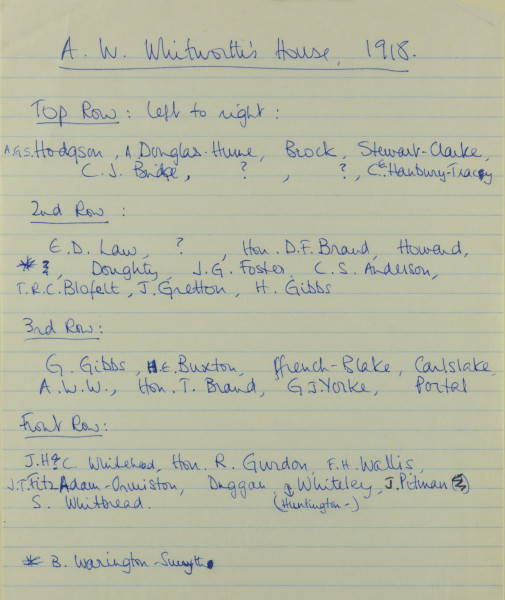 A. W. Whitworth's House, 1918.
Top Row: left to right:
A.G.S. Hodgson, A Douglas-Hume, Brock, Stewart-Clarke,
C. J. Bridge, ? , ?, C. Hanbury-Tracy
2nd Row:
E.D. Law, ? , Hon. D.F. Brand, Howard,
* ?, Doughty, J.G. Foster, C.S. Anderson,
T.R.C. Blofelt, J. Gretton, H. Gibbs
3rd Row:
G. Gibbs, H.E. Buxton, ffrench-Blake, Carlslake,
A.W.W., Hon. T. Brand, G J. Yorke, Portal
Front Row:
J.H & C Whitehead, Hon. R. Gurdon, F.H. Wallis,
J.T. Fitz Adam-Ormiston, Duggan, Whiteley, J. Pitman
S. Whitbread. (Huntington-)
* B. Warington-Smyth